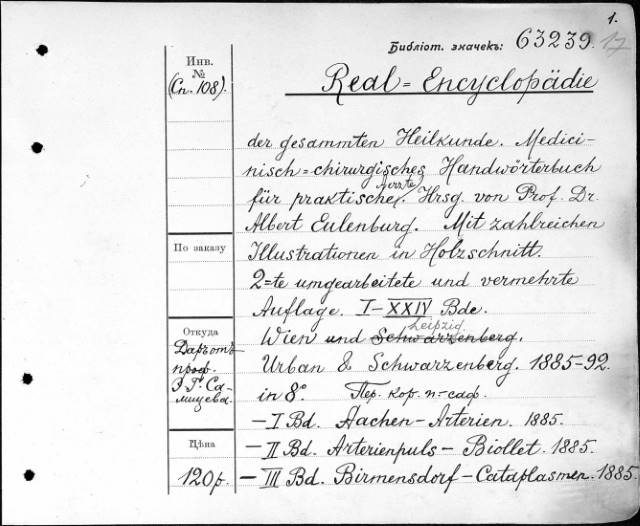 1.
Библіот. значекъ: 63239. 17
Инв.
№
(Сп. 108).
Real = Encyclopädie
der gesammten Heilkunde. Medici-
nisch = chirurgisches Handwörterbuch
für praktische Aerzte. Hrsg. von Prof. Dr.
Albert Eulenburg. Mit zahlreichen
По заказу
Illustrationen in Holzschnitt.
2=te umgearbeitete und vermehrte
Auflage. I–XXIV Bde.
Откуда
Даръ отъ
проф.
Wien und Schwarzenberg. Leipzig
Urban & Schwarzenberg. 1885-92.
in 8°. Пер. кор. п-саф.
– I Bd. Aachen – Arterien. 1885.
Цѣна
120 р.
– II Bd. Arterienpuls – Biollet. 1885.
– III Bd. Birmensdorf – Cataplasmen. 1885.